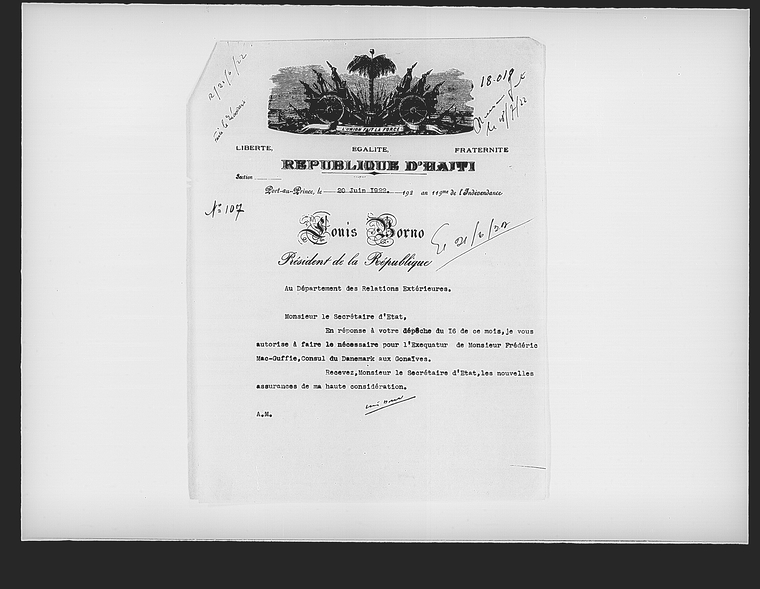 2/20/6/22
18.018
L'UNION FAIT LA FORCE
LIBERTE, EGALITE, FRATERNITE
REPUBLIQUE D'HAITI
Section
Port-au-Prince, le 20 Juin 1922. 192 an 119me de l'Indépendance
No 107
Louis Borno
Président de la République
E, 21/6/22
Au Département des Relations Extérieures.
Monsieur le Secrétaire d'Etat,
En réponse à votre dépêche du 16 de ce mois,je vous
autorise à faire le nécessaire pour l'Exequatur de Monsieur Frédéric
Mac-Guffie,Consul du Danemark aux Gonaïves.
Recevez,Monsieur le Secrétaire d'Etat,les nouvelles
assurances de ma haute considération.
A.M.